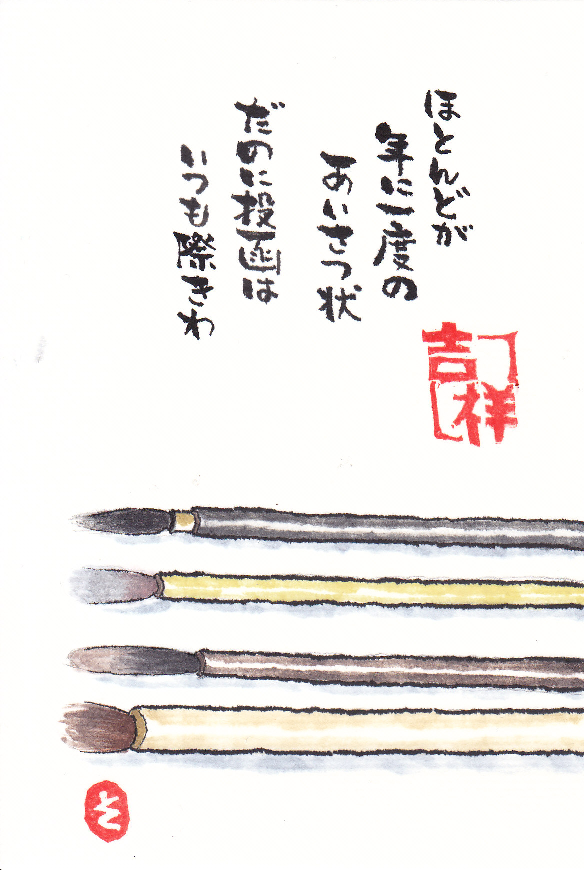 ほとんどが
年に一度の
あいさつ状
だのに投函は
いつも際きわ
吉祥
そ